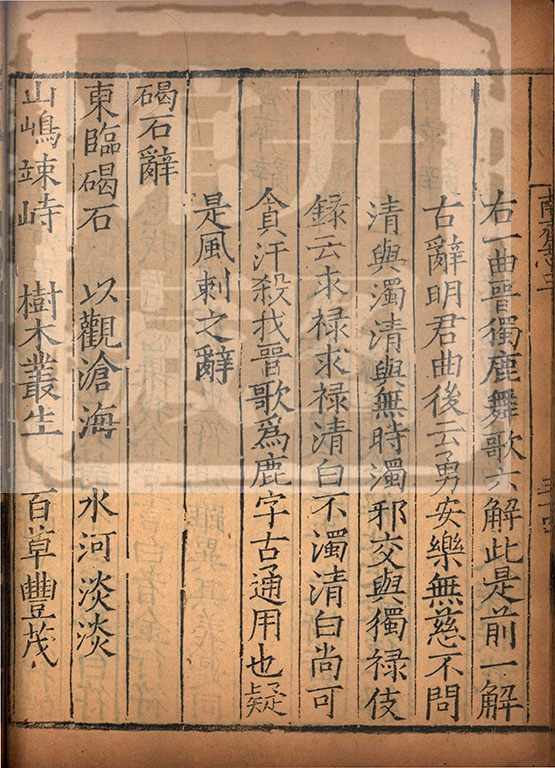 右一曲晉獨鹿舞歌六解此是前一解
古辭明君曲後云勇安樂無慈不問
清與濁清與無時濁邪交與獨祿伎
録云求禄求禄清白不濁清白尚可
貪汙殺我晉歌爲鹿字古通用也疑
是風刺之辭
碣石辭
東臨碣石 以觀滄海 水河淡淡
山嶋竦峙 樹木叢生 百草豐茂